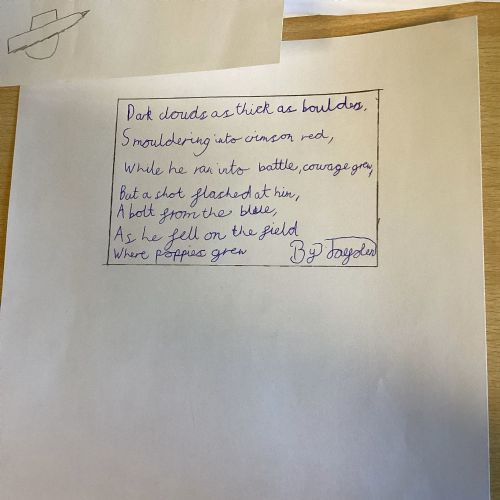 Dark clouds as thick as boulders,
Smouldering into crimson red,
While he ran into battle, courage grew,
But a shot flashed at him,
A bolt from the blue,
As he fell on the field
Where poppies grew
By Jayden